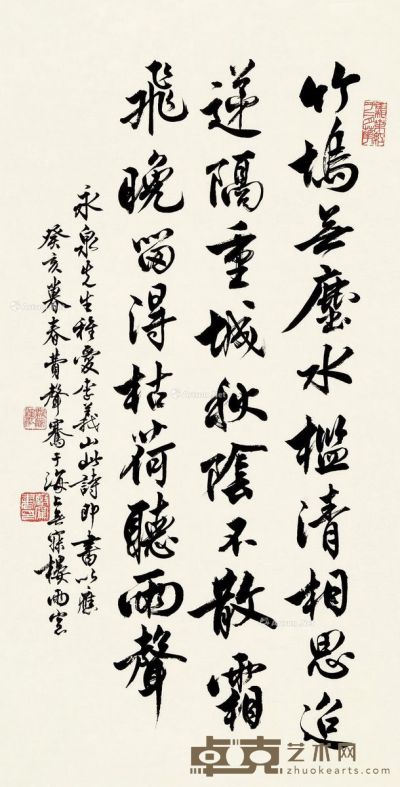 竹塢無塵水檻清相思迢
遞隔重城秋陰不散霜
飛晚留得枯荷聽雨聲
永泉先生種愛李義山此詩即書以應
癸亥暮春費聲騫于海上無寐樓雨窗
卓克艺术网
www.zhuokearts.com